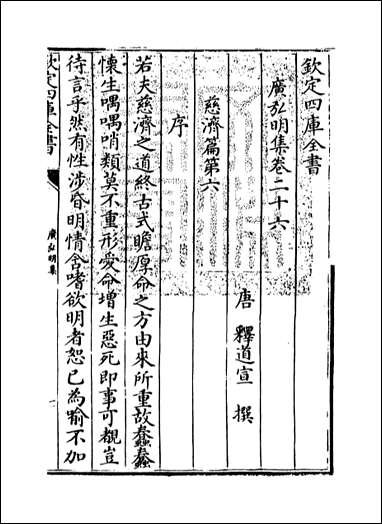 欽定四庫全書
廣弘明集卷二十六
唐 釋道宣 撰
慈濟篇第六
序
若夫慈濟之道終古式瞻厚命之方由來所重故蠢蠢
懐生喁喁哨類莫不重形愛命增生惡死即事可覩豈
待言乎然有性涉昏明情含嗜欲明者恕已為喻不加
欽定四庫全書
廣弘明集
一